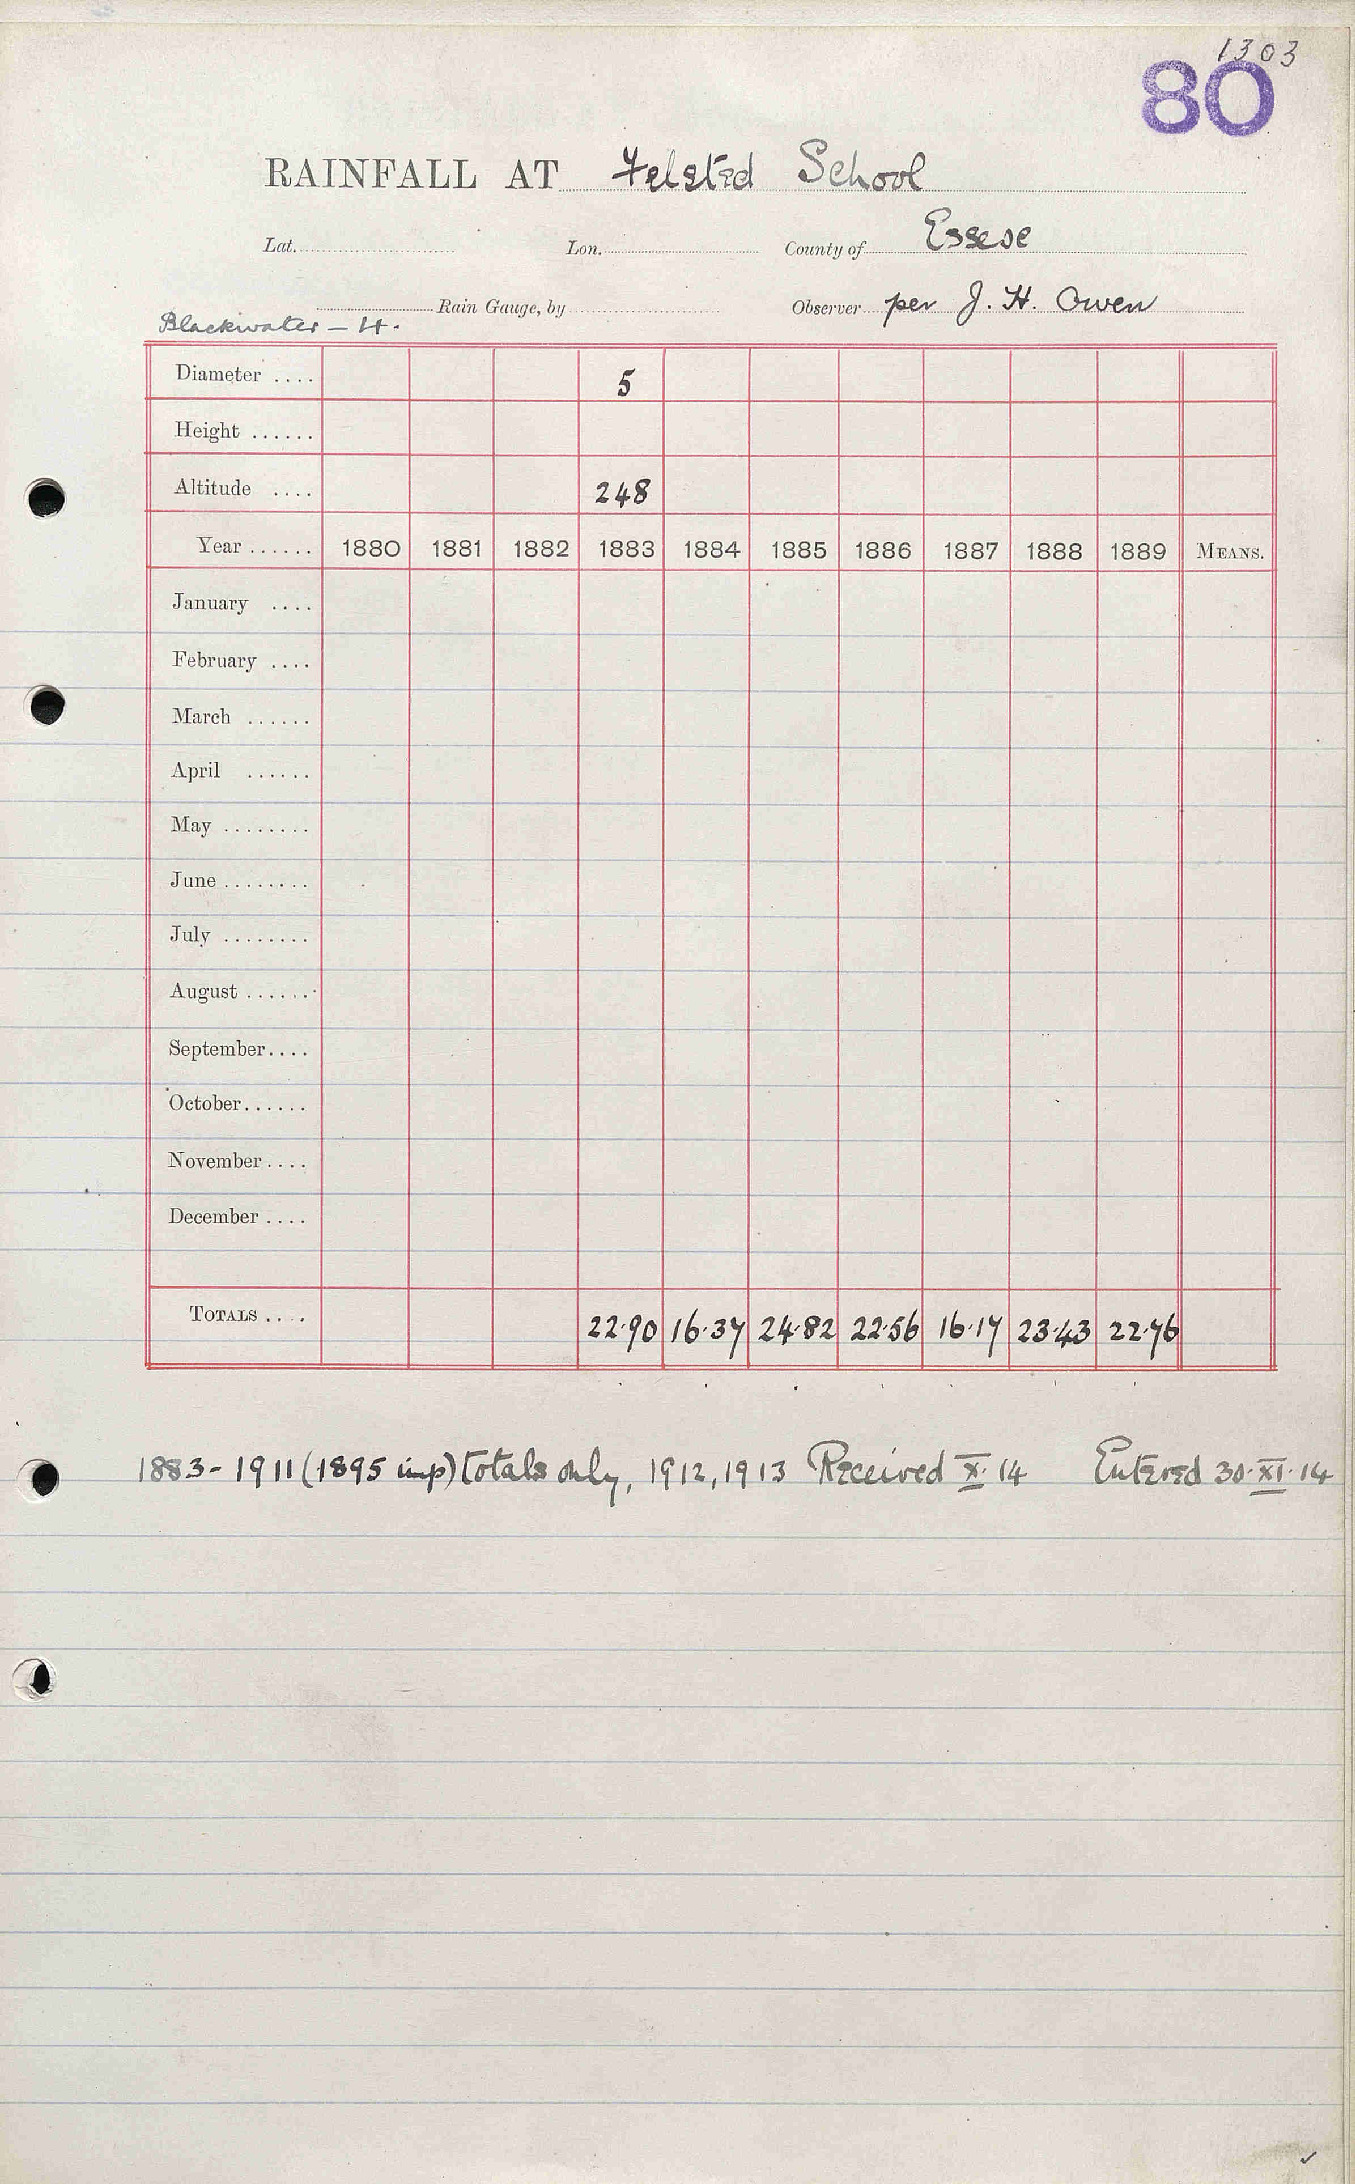 1303
80
RAINFALL AT Felsted School
Lat. Lon. County of Essex
Rain Gauge, by Observer per J. H. Owen
Blackwater – 4.
Diameter .... 5
Height ......
Altitude .... 248
Year ...... 1880 1881 1882 1883 1884 1885 1886 1887 1888 1889 MEANS.
January ....
February ....
March ......
April ......
May ........
June ........
July ........
August ......
September....
October......
November....
December ....
TOTALS .... 22.90 16.37 24.82 22.56 16.17 23.43 22.76
1883 - 1911 (1895 imp) totals only, 1912, 1913 Received X. 14 Entered 30. XI. 14